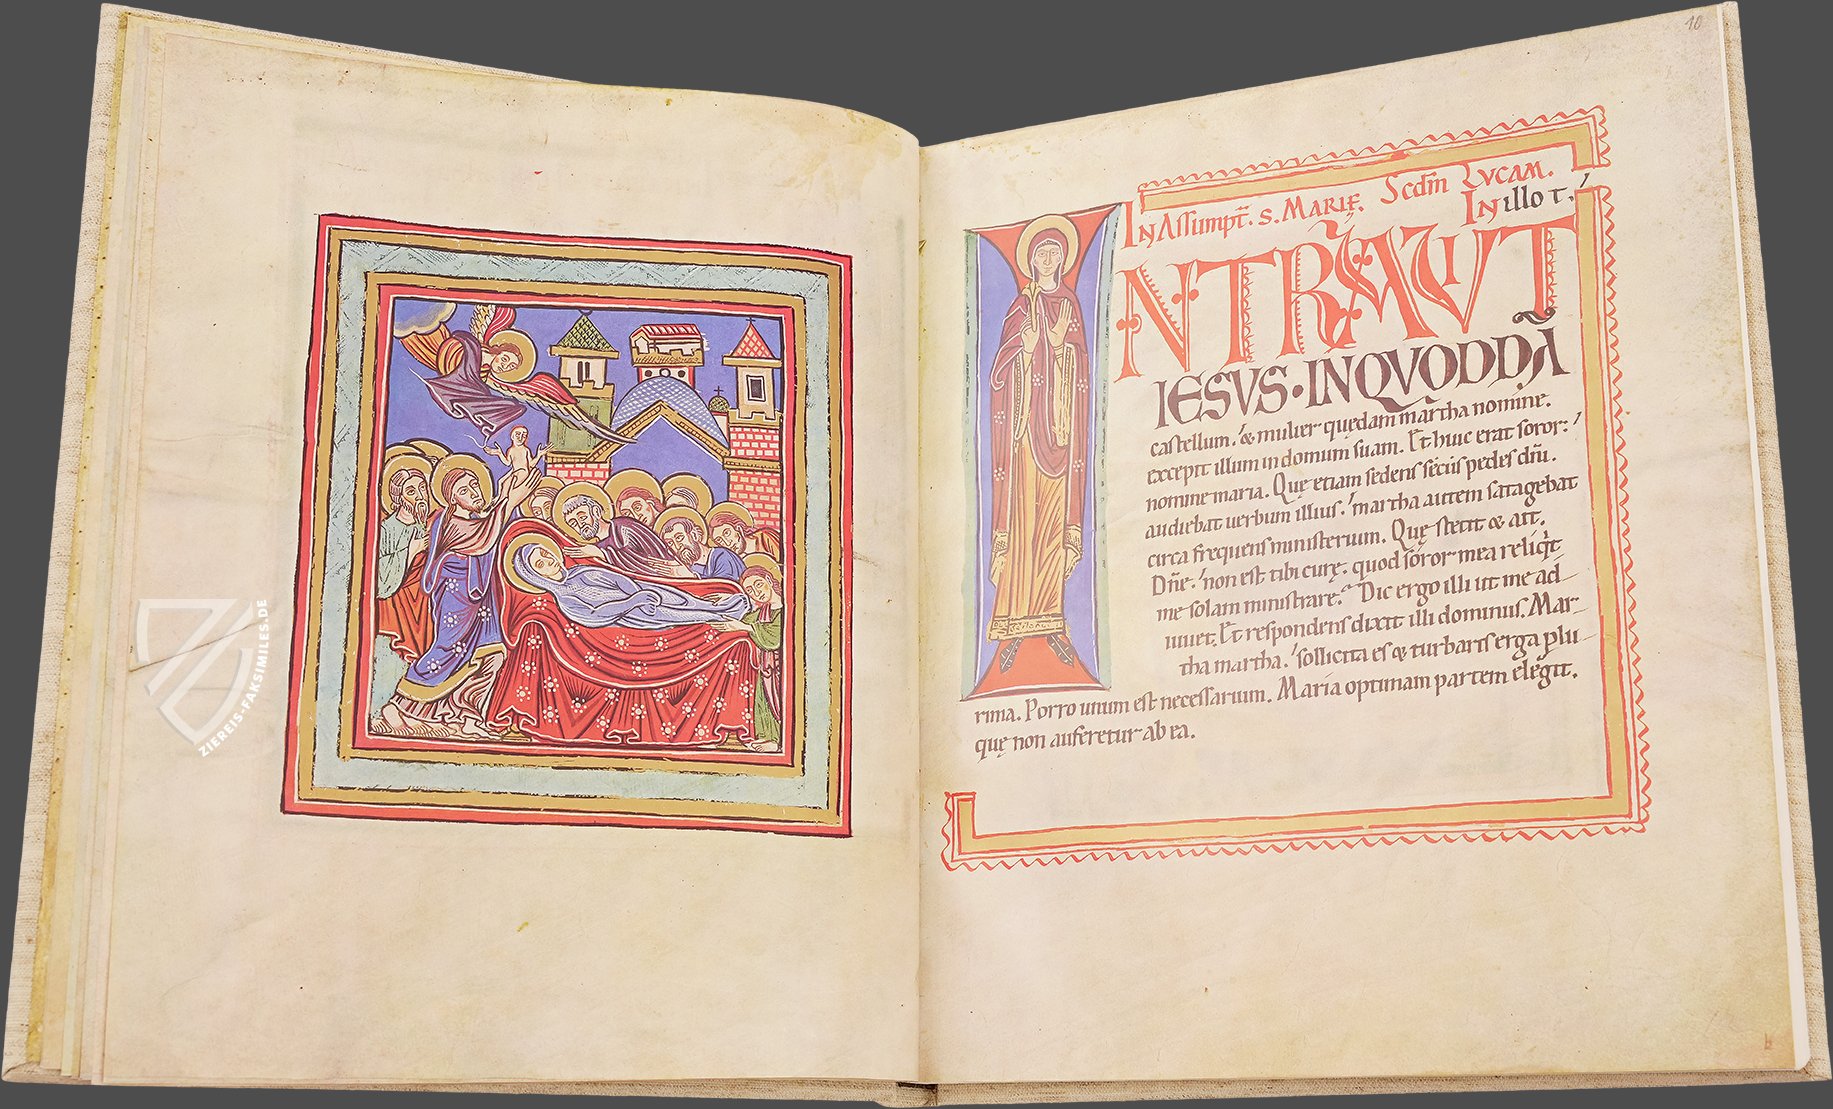 ZIEREIS-FAKSIMILES.DE
10
IN Assumpt̄. S. MARIĘ. Scd̄m LUCAM.
IN illo t.
INTRAVIT
IESUS·INQUODDĀ
castellum. & mulier quędam martha nomine.
excepit illum in domum suam. Et huic erat soror:
nomine maria. Quę etiam sedens secus pedes dn̄i.
audiebat uerbum illius. martha autem satagebat
circa frequens ministerium. Quę stetit & ait.
Dn̄e. non est tibi curę. quod soror mea reliq̇t
me solam ministrare. Dic ergo illi ut me ad
iuuet. Et respondens dixit illi dominus. Mar-
tha martha. sollicita es & turbaris erga plu
rima. Porro unum est necessarium. Maria optimam partem elegit.
quę non auferetur ab ea.